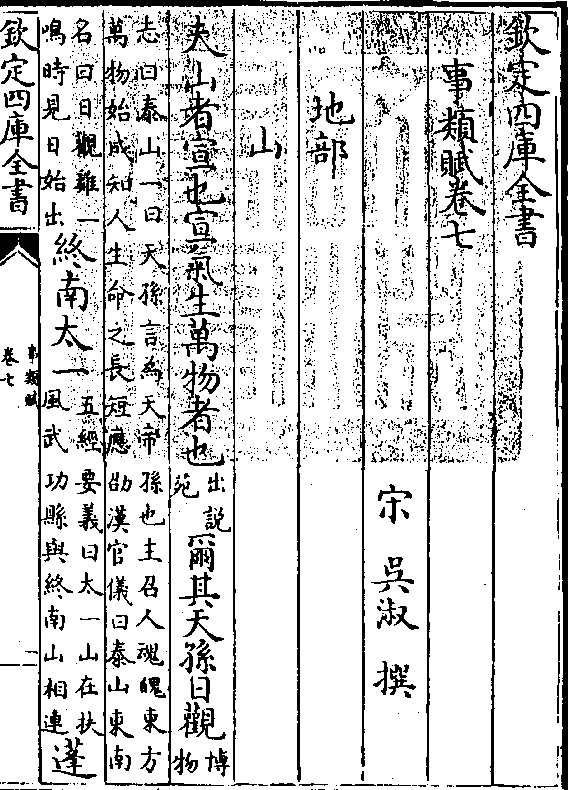 欽定四庫全書
事類賦卷七
宋 吳淑 撰
地部
山
夫山者宣也宣氣生萬物者也出說苑爾其天孫日觀博物
志曰泰山一曰天孫言為天帝孫也主召人魂魄東方
萬物始成知人生命之長短應劭漢官儀曰泰山東南
名曰日觀雞一鳴時見日始出終南太一五經要義曰太一山在扶風武功縣與終南山相連蓬
欽定四庫全書
事類賦
卷七
一